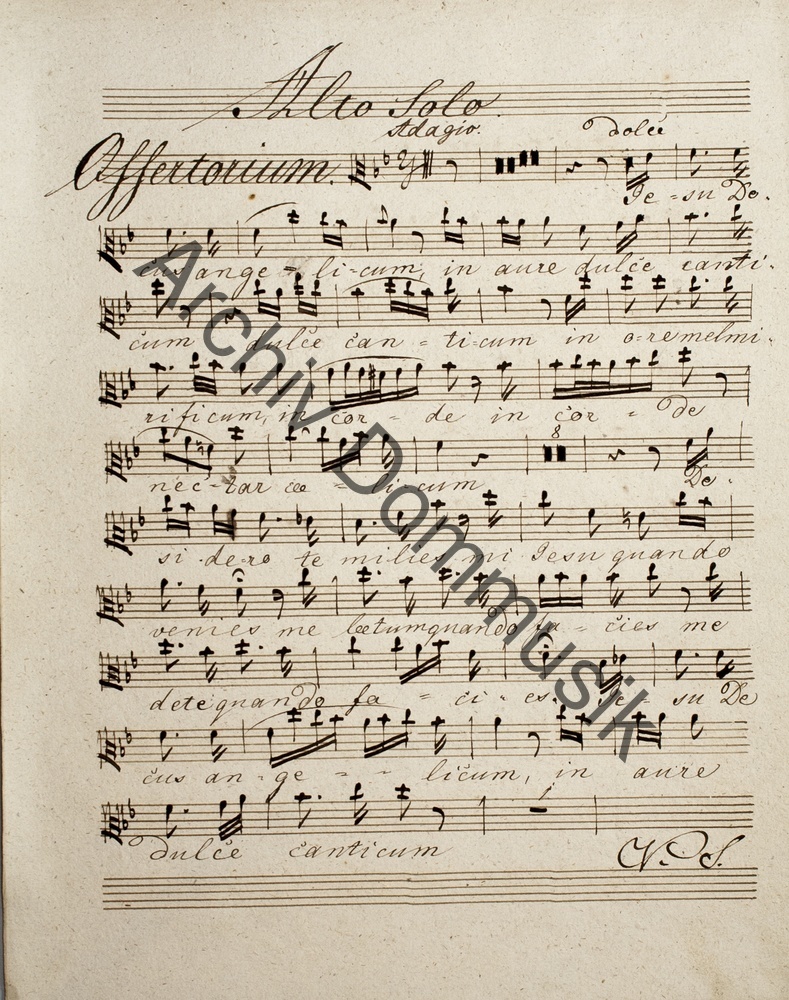 Alto Solo
Adagio. dolce
Offertorium.
Je - su De -
cus ange - li-cum, in aure dulce canti -
cum dulce can - ti-cum in o-re melmi -
rificum, in cor - de in cor - de
8
nec-tar cœ - li-cum De -
si-de-ro te milies mi Jesu quando
venies me lætum quando fa - cies me
de te quando fa - ci - es. Je - su De
cus an-ge - - licum, in aure
dulce canticum V. S.
Archiv Dommusik